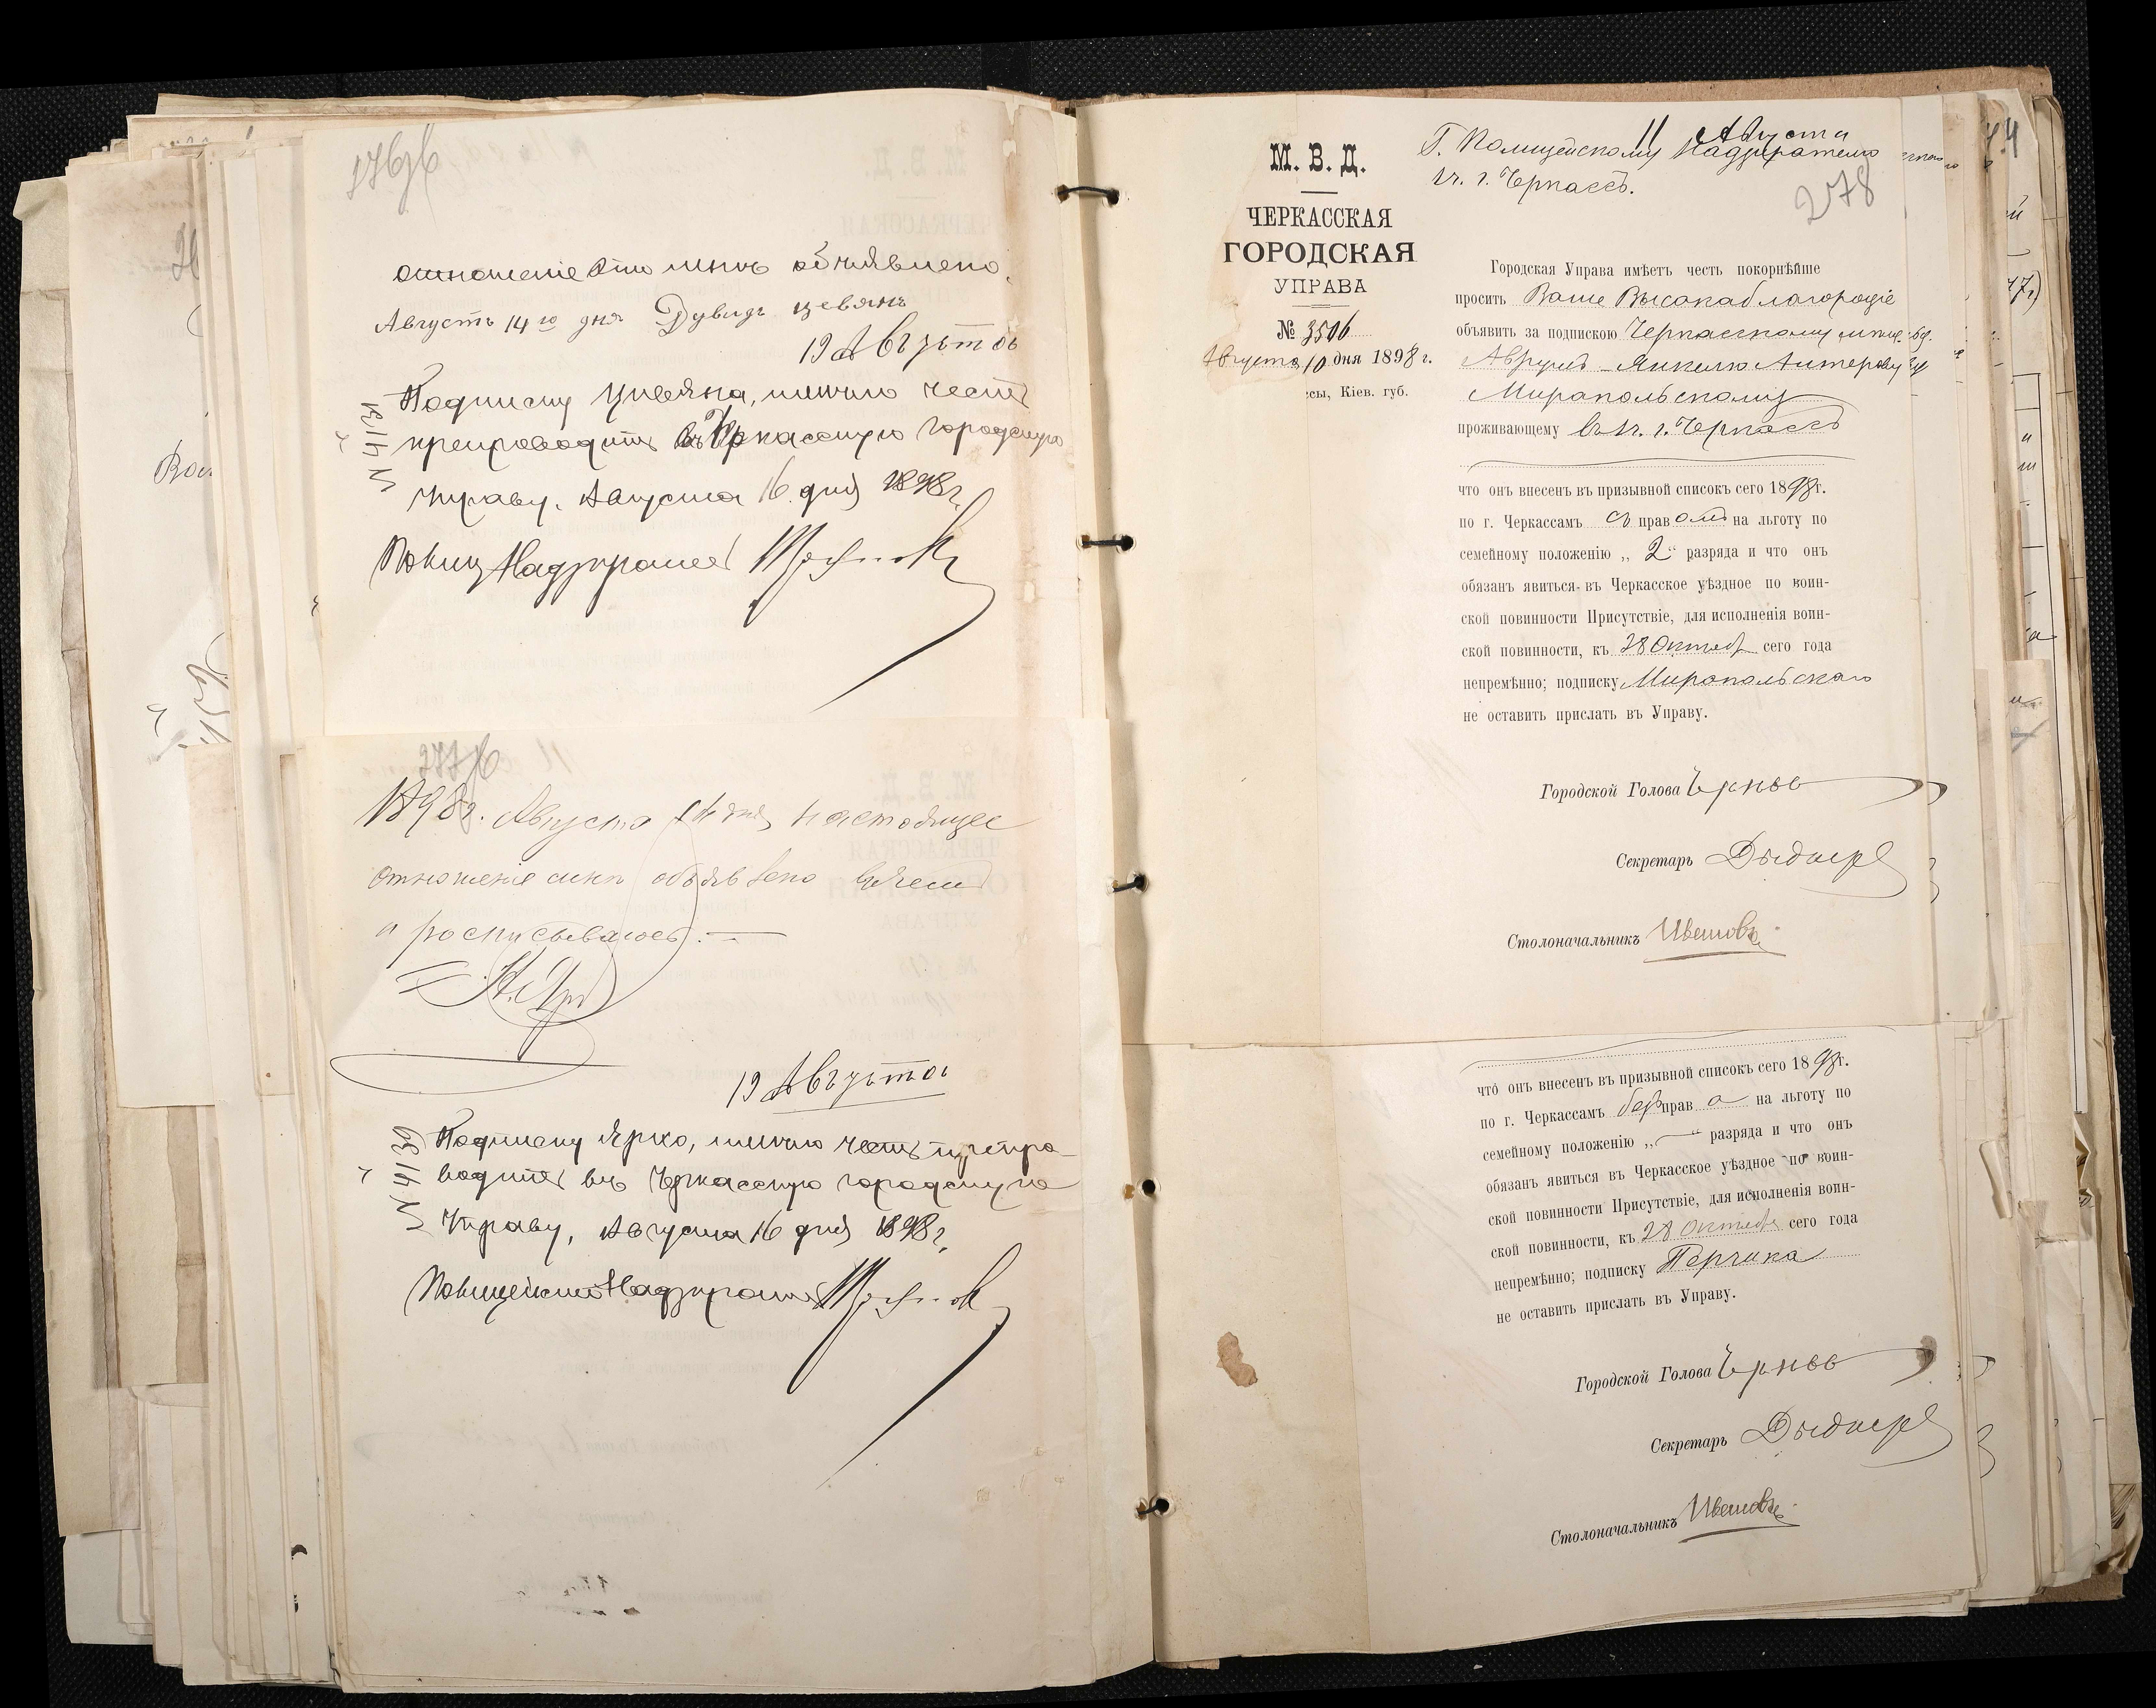 276 об
отношеніе это мнѣ объявлено.
Августъ 14го дня Дувидъ
19 Августа
Подписку имѣю честь
препроводить въ Черкасскую городскую
Управу. Августа 16 дня 1898 г.
№ 4131
Полиц Надзиратель
277 об
1898 г. Августа дня настоящее
отношеніе мнѣ объявлено
и росписываюсь.
19 Августа
Подписку Ярко, имѣю честь препро-
водить въ Черкасскую городскую
Управу, Августа 16 дня 1898 г.
№ 4139
Полицейскій Надзиратель
М. В. Д.
ЧЕРКАССКАЯ
ГОРОДСКАЯ
УПРАВА
№ 3506
Августа 10 дня 1898 г.
ссы, Кіев. губ.
11 Августа
Г. Полицейскому Надзирателю
1 ч. г. Черкассъ.
278
Городская Управа имѣетъ честь покорнѣйше
просить Ваше Высокаблагородіе
объявить за подпискою Черкасскому мѣщ.
Аврумъ-Янкелю Литерову
Миропольскому
проживающему въ 1 ч. г. Черкассъ
что онъ внесенъ въ призывной списокъ сего 1898 г.
по г. Черкассамъ съ правомъ на льготу по
семейному положенію „ 2 “ разряда и что онъ
обязанъ явиться въ Черкасское уѣздное по воин-
ской повинности Присутствіе, для исполненія воин-
ской повинности, къ 28 Октябр сего года
непремѣнно; подписку Миропольскаго
не оставить прислать въ Управу.
Городской Голова
Секретарь
Столоначальникъ
что онъ внесенъ въ призывной списокъ сего 1898 г.
по г. Черкассамъ безъ права на льготу по
семейному положенію „ — “ разряда и что онъ
обязанъ явиться въ Черкасское уѣздное по воин-
ской повинности Присутствіе, для исполненія воин-
ской повинности, къ 28 Октября сего года
непремѣнно; подписку Перчика
не оставить прислать въ Управу.
Городской Голова
Секретарь
Столоначальникъ